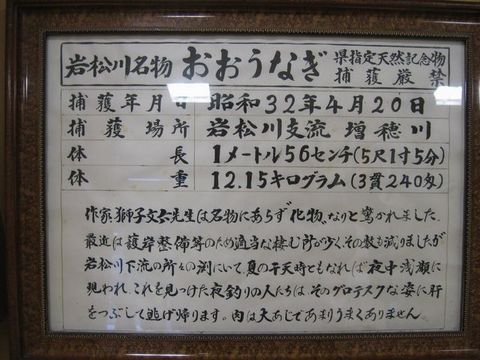 岩松川名物 おおうなぎ 県指定天然記念物 捕獲厳禁
捕獲年月日 昭和32年4月20日
捕獲場所 岩松川支流 増穂川
体長 1メートル56センチ(5尺1寸5分)
体重 12.15キログラム(3貫240匁)
作家獅子文六先生は名物にあらず化物、なりと驚かれました。
最近は護岸整備等のため適当な棲む所が少く、その数も減りましたが
岩松川下流の所々の渕にいて、夏の干天時ともなれば夜中浅瀬に
現われ、これを見つけた夜釣りの人たちは、そのグロテスクな姿に肝
をつぶして逃げ帰ります。肉は大あじであまりうまくありません。